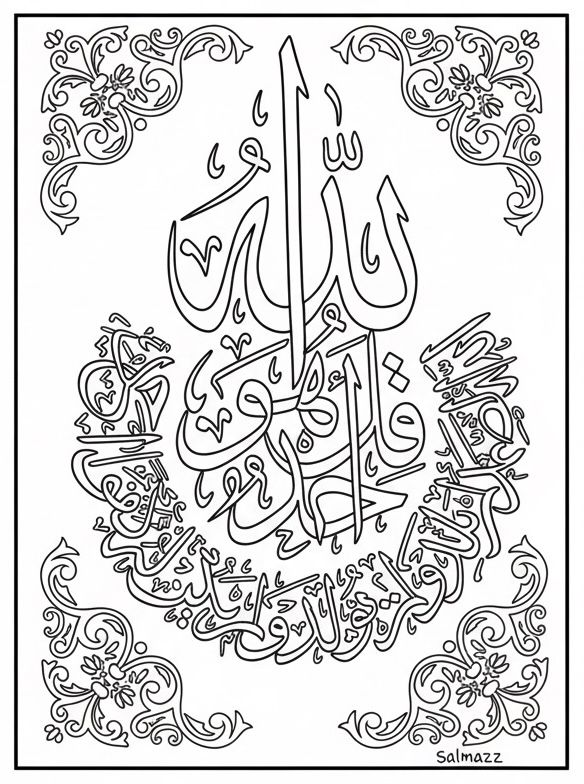 قُلْ هُوَ اللَّهُ أَحَدٌ
اللَّهُ الصَّمَدُ لَمْ يَلِدْ وَلَمْ يُولَدْ وَلَمْ يَكُنْ لَهُ كُفُوًا أَحَدٌ
Salmazz